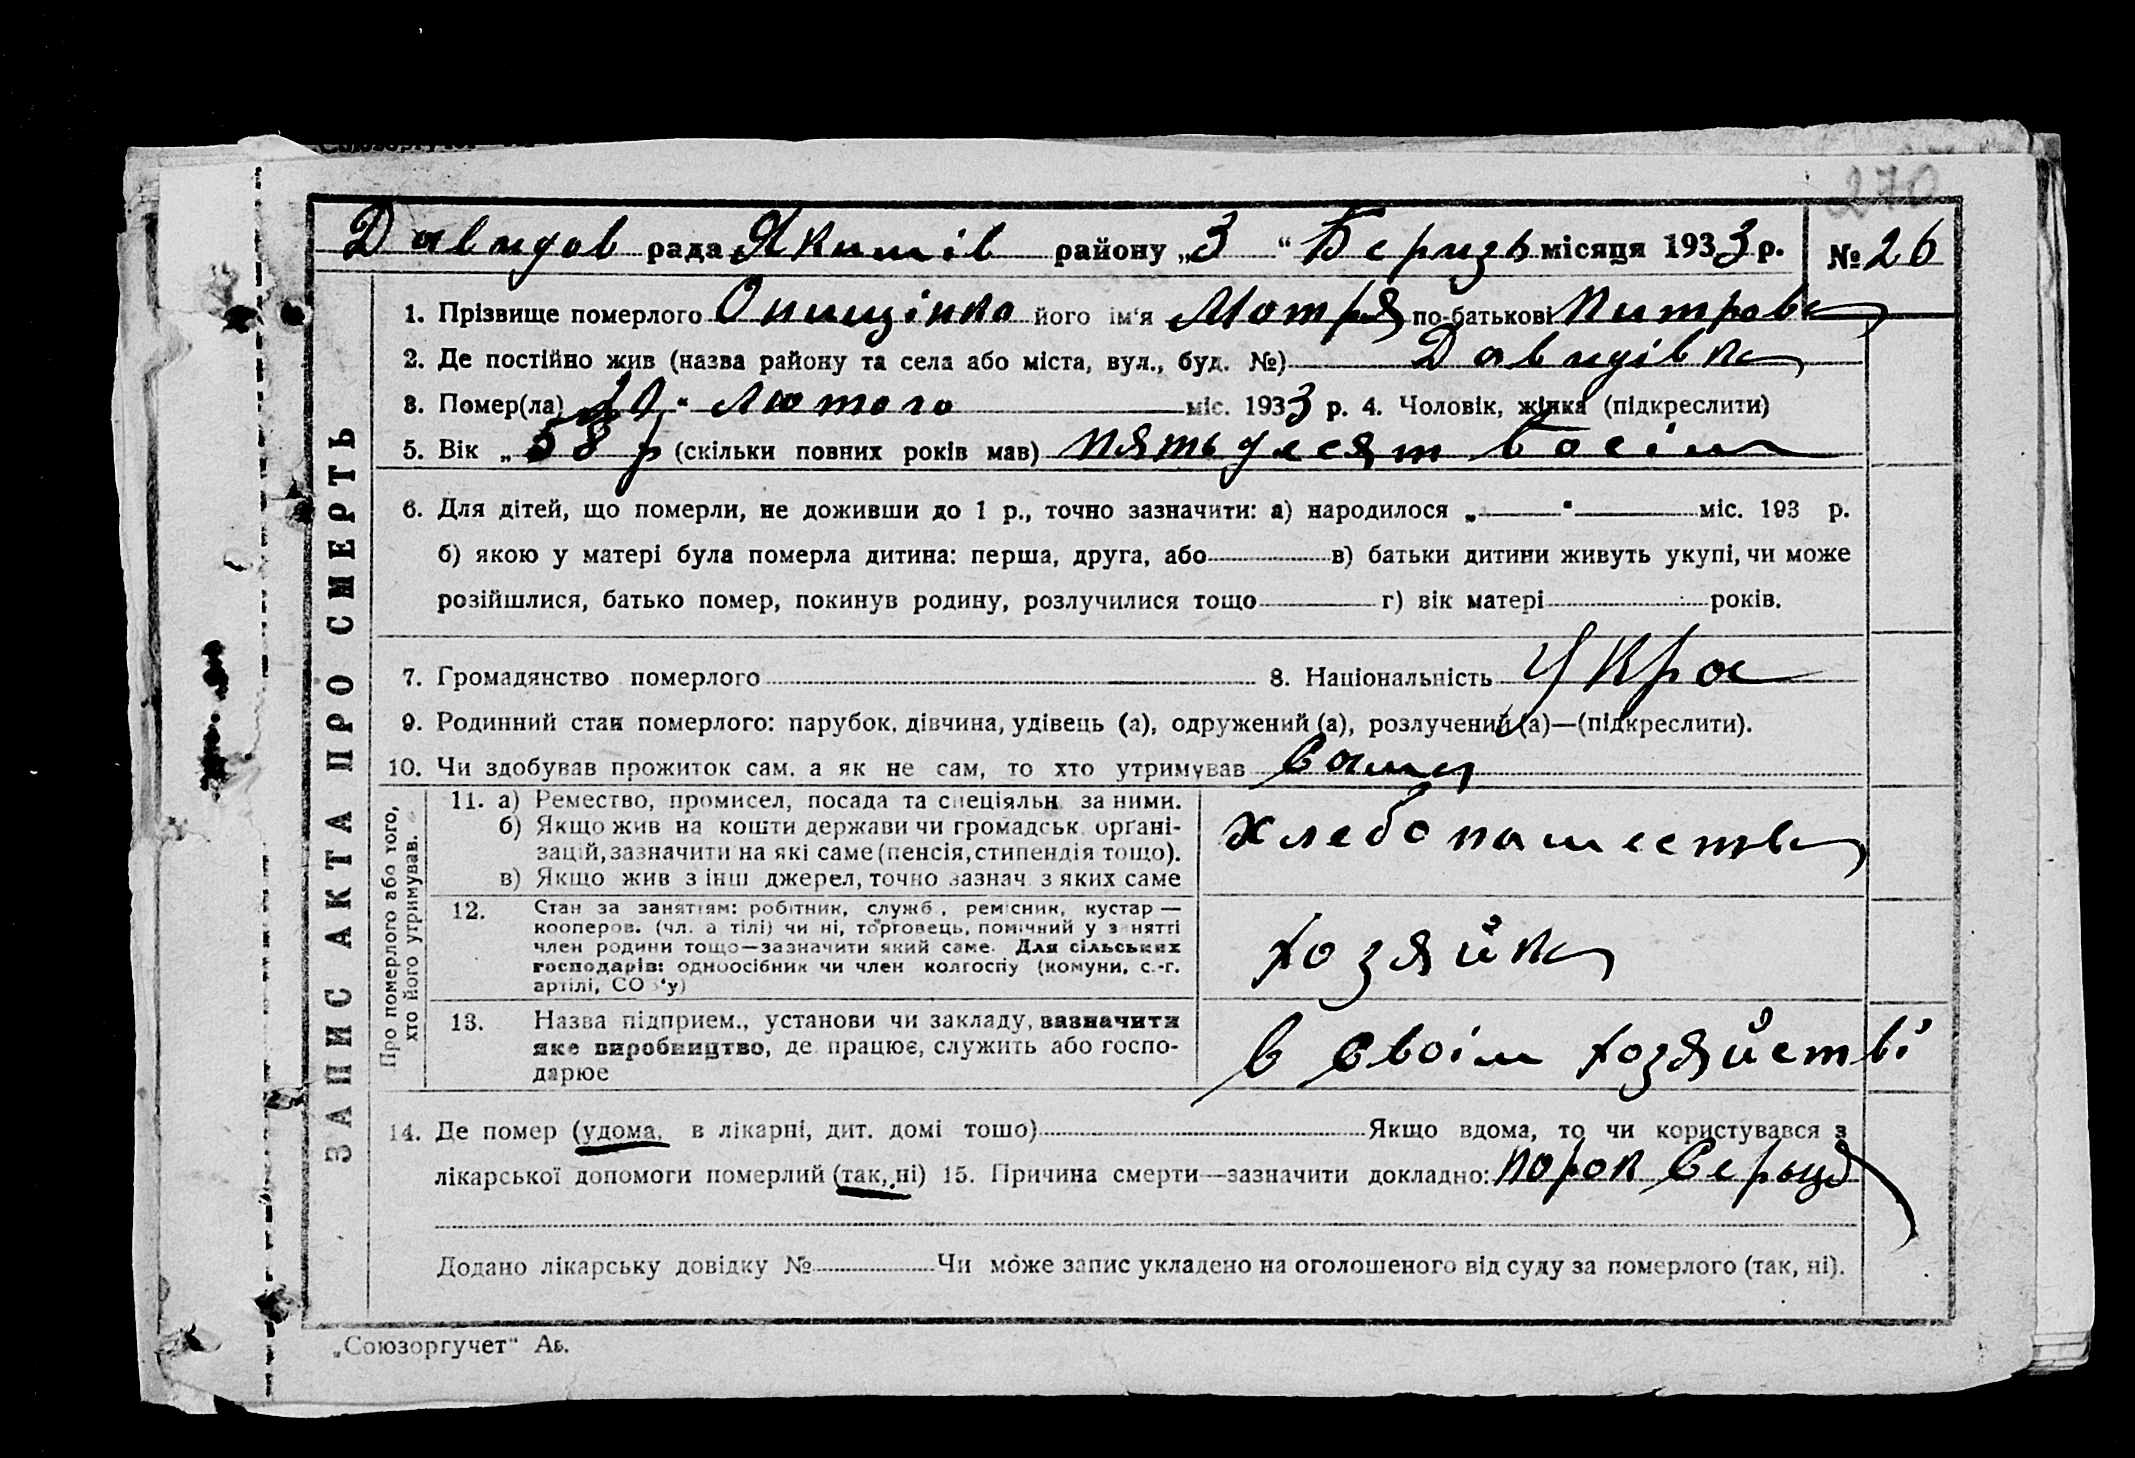 270
Давидов рада Якимів району „3“ Березь місяця 1933 р. № 26
1. Прізвище померлого Онищінко його ім'я Мотря по-батькові Питровн
2. Де постійно жив (назва району та села або міста, вул., буд. №) Давидівка
3. Помер(ла) 20 “ Лютого міс. 1933 р. 4. Чоловік, жінка (підкреслити)
5. Вік „ 58 р (скільки повних років мав) пятьдесят восім
6. Для дітей, що померли, не доживши до 1 р., точно зазначити: а) народилося „ “ міс. 193 р.
б) якою у матері була померла дитина: перша, друга, або в) батьки дитини живуть укупі, чи може
розійшлися, батько помер, покинув родину, розлучилися тощо г) вік матері років.
7. Громадянство померлого 8. Національність Укра
9. Родинний стан померлого: парубок, дівчина, удівець (а), одружений (а), розлучений (а)—(підкреслити).
10. Чи здобував прожиток сам. а як не сам, то хто утримував
11. а) Ремество, промисел, посада та спеціяльн за ними.
б) Якщо жив на кошти держави чи громадськ. органі-
зацій, зазначити на які саме (пенсія, стипендія тощо).
в) Якщо жив з інш джерел, точно зазнач. з яких саме
хлебопашество
12. Стан за заняттям: робітник, служб., ремісник, кустар —
кооперов. (чл. артілі) чи ні, торговець, помічний у занятті
член родини тощо—зазначити який саме. Для сільських
господарів: одноосібник чи член колгоспу (комуни, с.-г.
артілі, СОЗ'у)
хозяйка
13. Назва підприєм., установи чи закладу, зазначити
яке виробництво, де працює, служить або госпо-
дарює
в своім хозяйстві
14. Де помер (удома, в лікарні, дит. домі тощо) Якщо вдома, то чи користувався з
лікарської допомоги померлий (так, ні) 15. Причина смерти—зазначити докладно: порок серьця
Додано лікарську довідку № Чи може запис укладено на оголошеного від суду за померлого (так, ні).
ЗАПИС АКТА ПРО СМЕРТЬ
Про померлого або того,
хто його утримував.
„Союзоргучет“